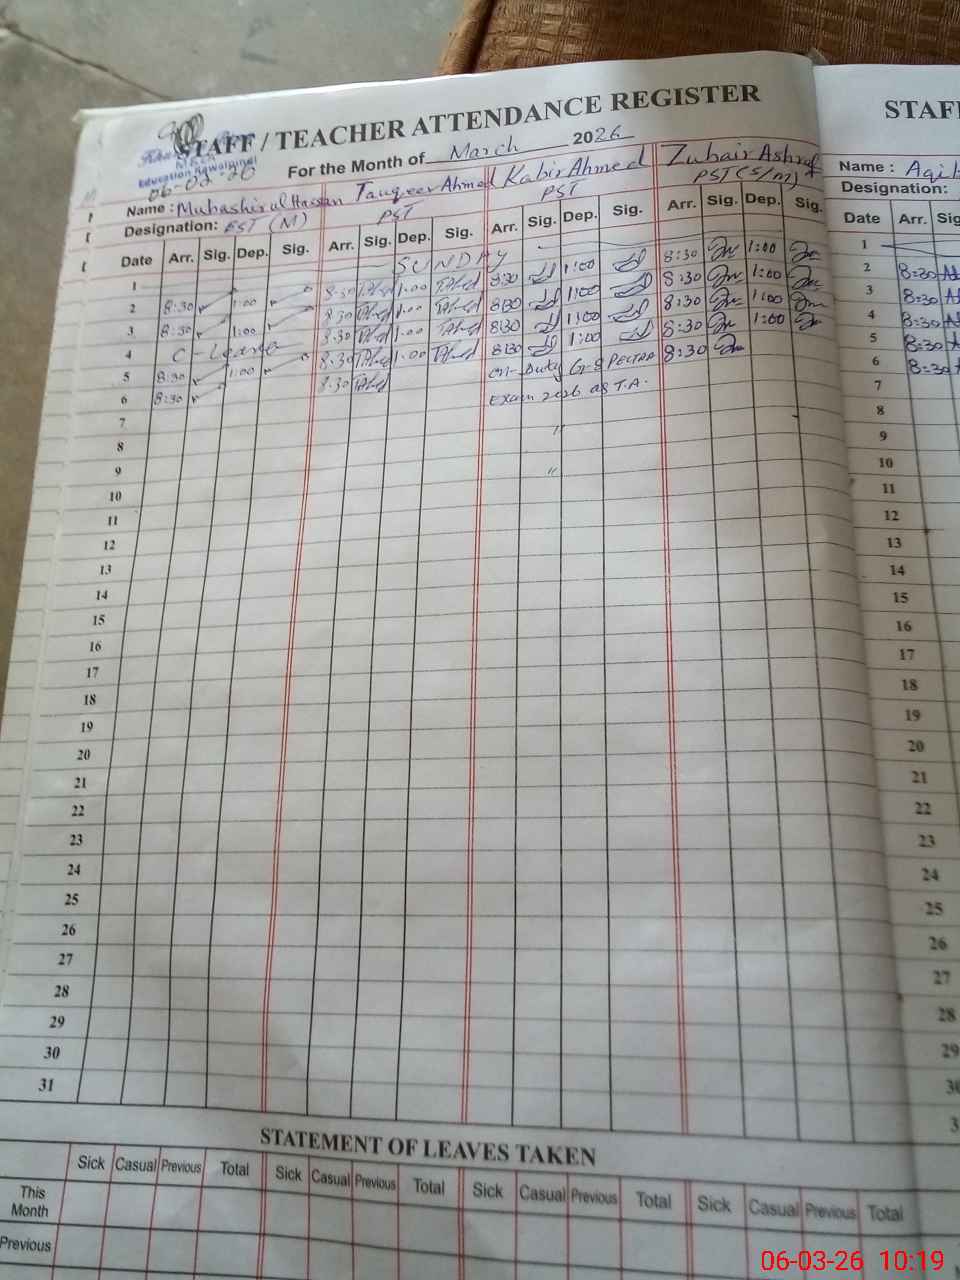 STAFF / TEACHER ATTENDANCE REGISTER
Education Rawalpindi
For the Month of March 2026
Name : Mubashir ul Hassan Tauqeer Ahmed Kabir Ahmed Zubair Ashraf
Designation: EST (M) PST PST PST (S/M)
Date Arr. Sig. Dep. Sig. Arr. Sig. Dep. Sig. Arr. Sig. Dep. Sig. Arr. Sig. Dep. Sig.
1 SUNDAY
2 8:30 1:00 8:30 1:00 8:30 1:00 8:30 1:00
3 8:30 1:00 8:30 1:00 8:30 1:00 8:30 1:00
4 C-Leave 8:30 1:00 8:30 1:00 8:30 1:00
5 8:30 1:00 8:30 1:00 8:30 1:00 8:30 1:00
6 8:30 8:30 on-Duty Gr-8 8:30
Exam 2026 as T.A.
7
8 "
9
10 "
11
12
13
14
15
16
17
18
19
20
21
22
23
24
25
26
27
28
29
30
31
STATEMENT OF LEAVES TAKEN
Sick Casual Previous Total Sick Casual Previous Total Sick Casual Previous Total Sick Casual Previous Total
This
Month
Previous
STAF
Name :
Designation:
Date Arr.
1
2 8:30
3 8:30
4 8:30
5 8:30
6 8:30
7
8
9
10
11
12
13
14
15
16
17
18
19
20
21
22
23
24
25
26
27
28
29
06-03-26 10:19